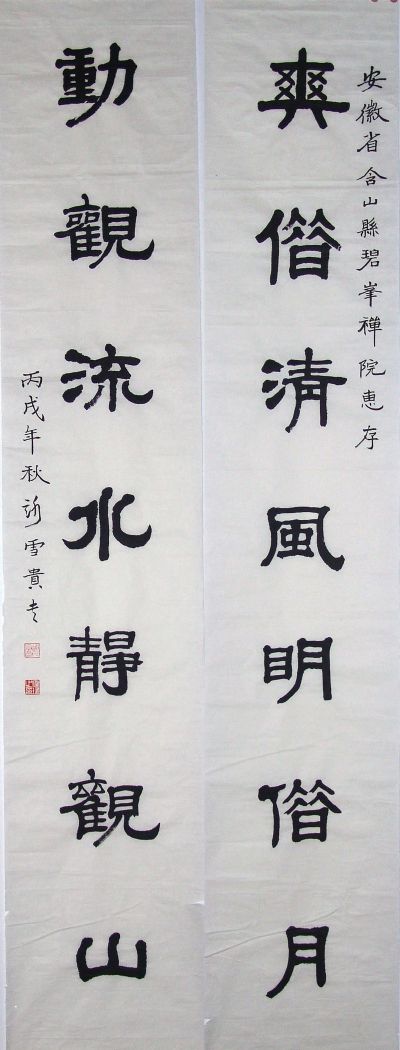 安徽省含山縣碧峯禪院惠存
爽借清風明借月
動觀流水靜觀山
丙戌年秋許雪貴書